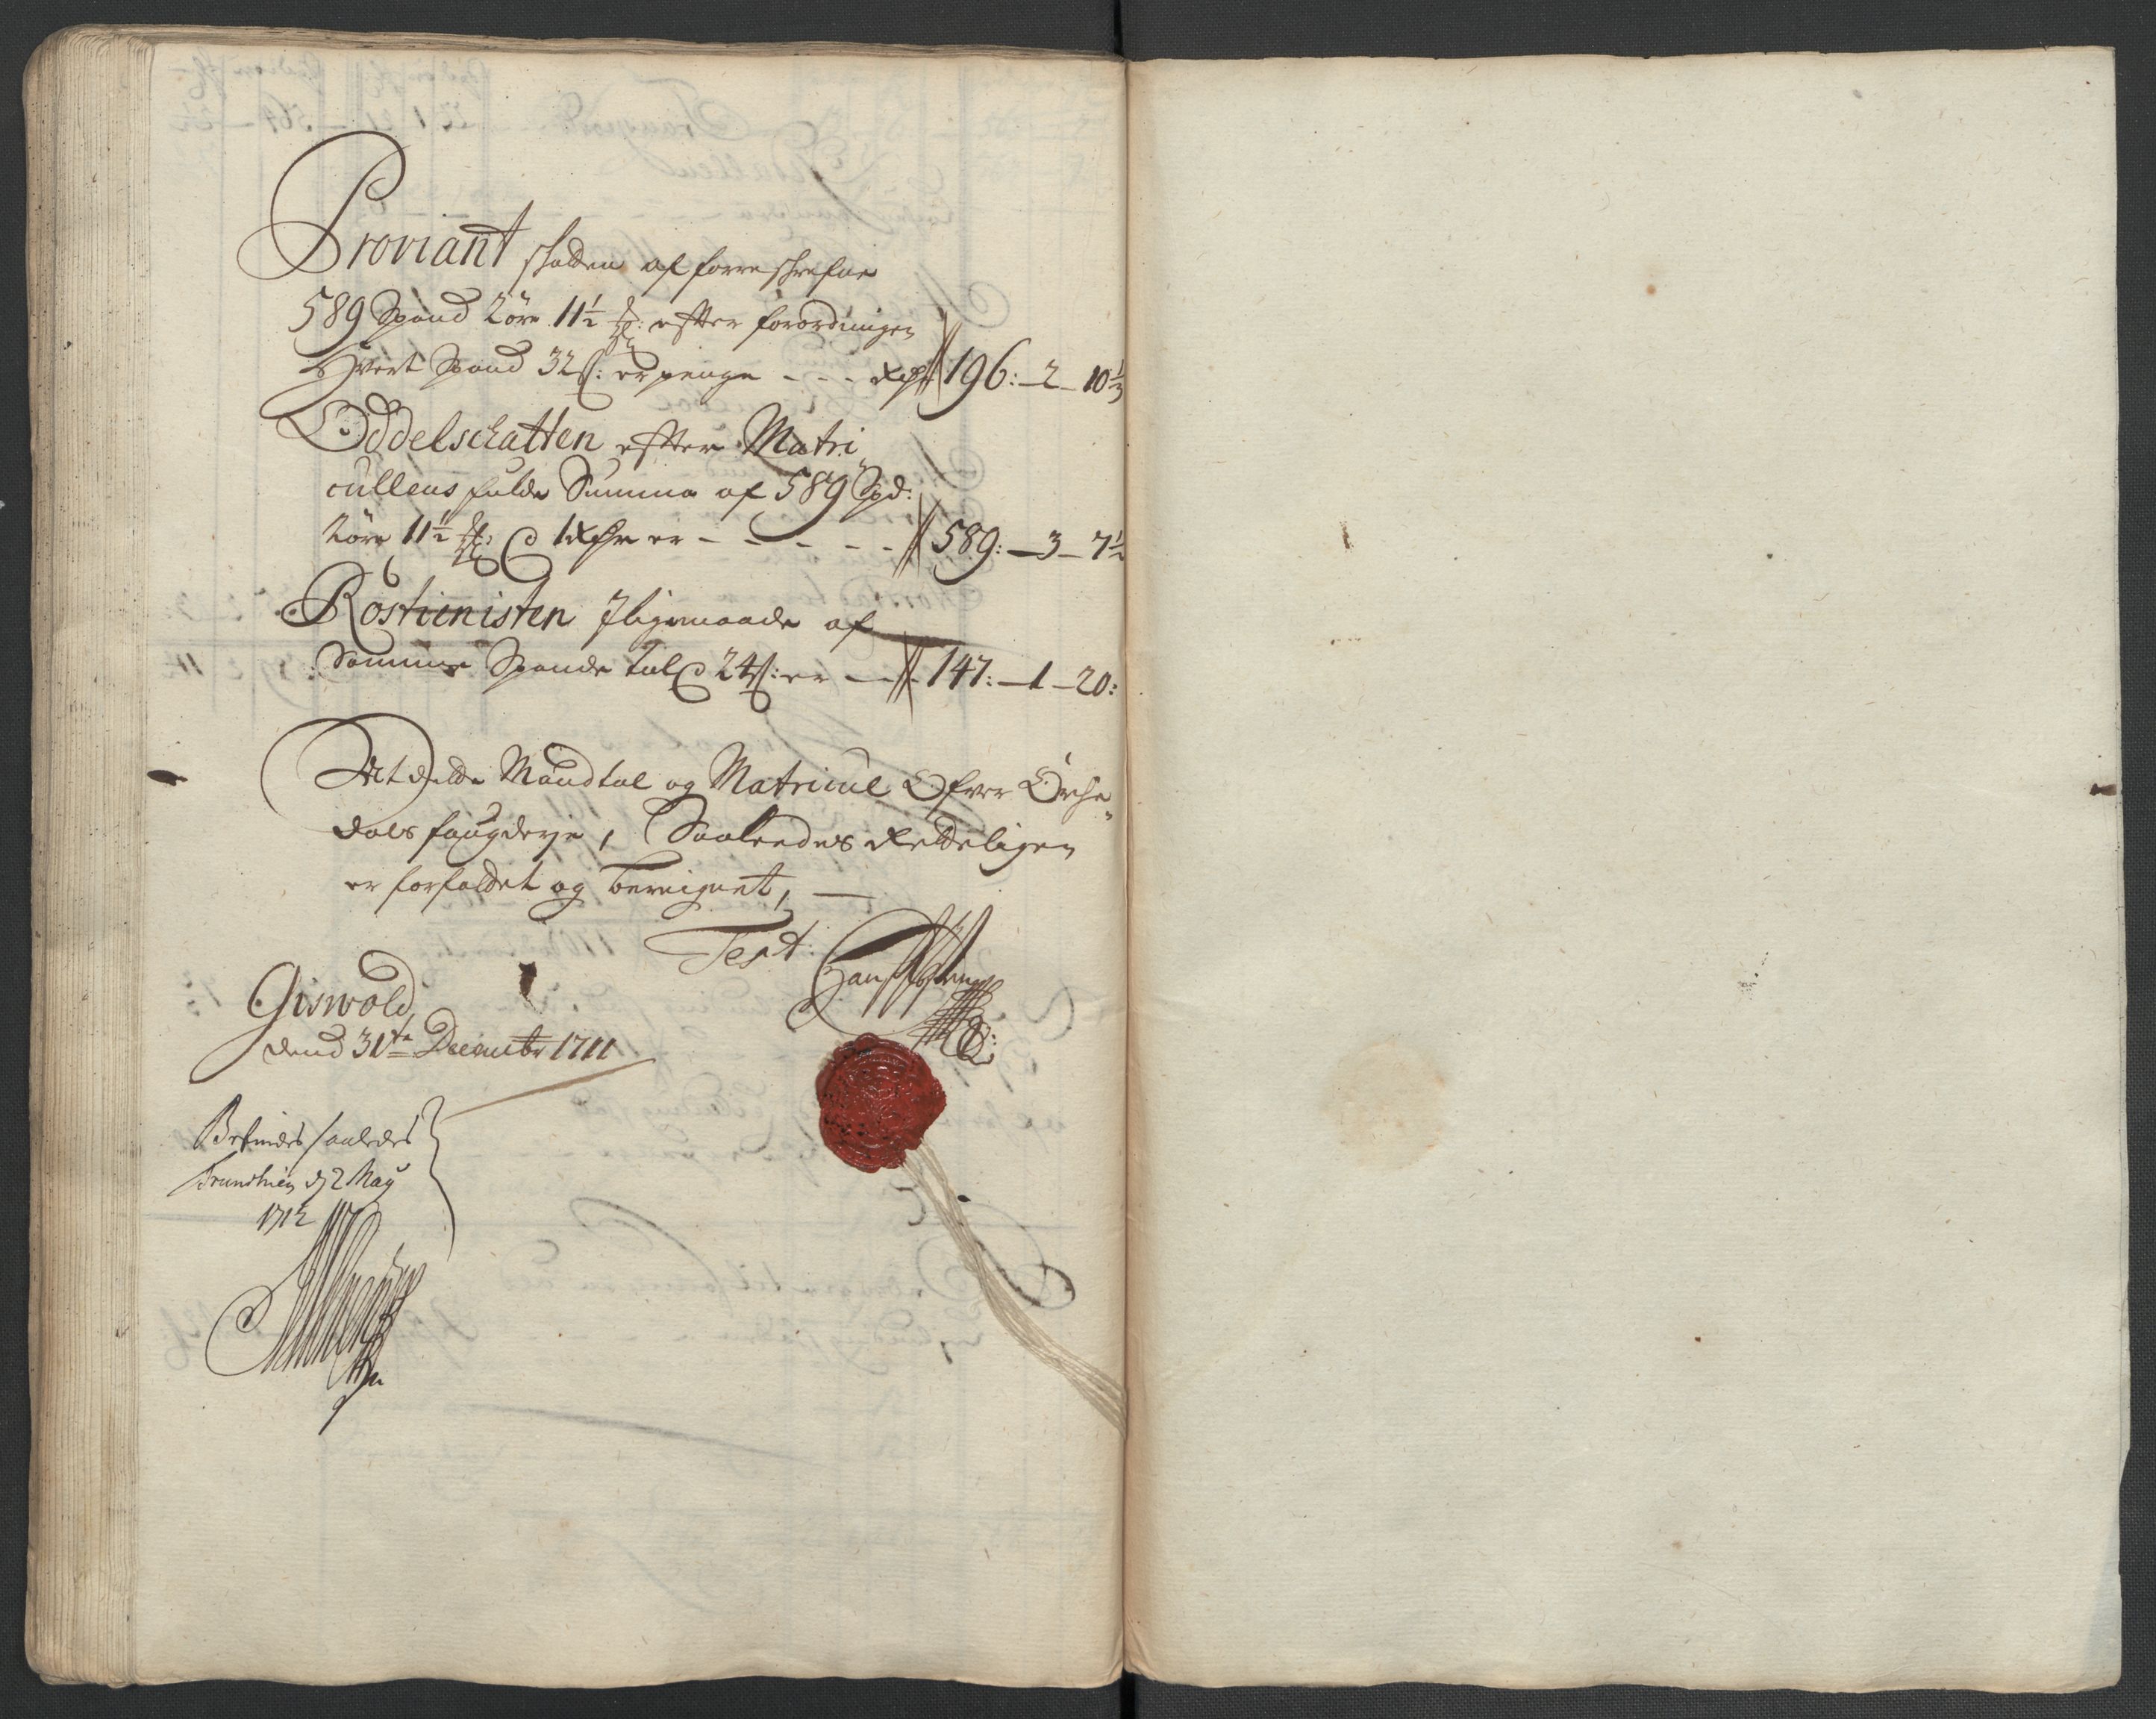 Proviant skatten af forreskrefne
589 Spand 2 øre 11½ mkl: efter forordningen
Hvert Spand 32 s: er penge - - - Rdr 196: - 2 - 10⅓
Oddelschatten efter Matri
cullens fulde Summa af 589 Spd:
2 øre 11½ mkl: @ 1 Rdr er - - - - - 589: - 3 - 7½
Rostienisten J ligemaade af
Samme Spande tal @ 24 s: er - - 147: - 1 - 20:
At dette Mandtal og Matricul Ofver Orche
dals fougderje, Saaledes Retteligen
er forfattet og beregnet,
Test:
Giswold
dend 31te Decembr 1711
Befindes saaledes
Trundhiem d 2 May
1712